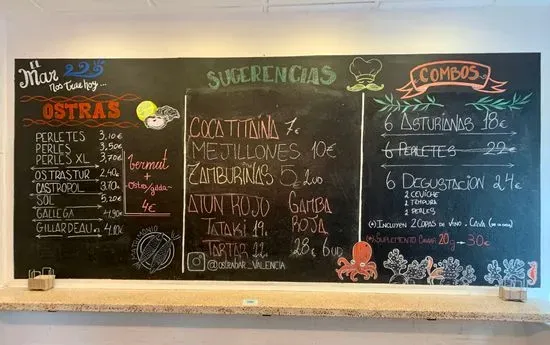 El Mar 225
nos trae hoy...
OSTRAS
PERLETES 3,10€
PERLES 3,50€
PERLES XL 3,70€
OSTRASTUR 2,40€
CASTROPOL 3,70€
SOL 5,20€
GALLEGA 4,90€
GILLARDEAU 4,10€
vermut
+
ostra/gilda
4€
MATRIMONIO
SUGERENCIAS
COCA TITAINA 7€
MEJILLONES 10€
ZAMBURIÑAS 5 2UD
ATUN ROJO
TATAKI 19
TARTAR 22
GAMBA
ROJA
28€ 6UD
@OSTRABAR_VALENCIA
COMBOS
6 ASTURIANAS 18€
6 PERLETES 22€
6 DEGUSTACION 24€
2 CEVICHE
2 TEMPURA
2 PERLES
(*) INCLUYEN 2 COPAS DE VINO o CAVA
(*) SUPLEMENTO CAVIAR 20g → 30€